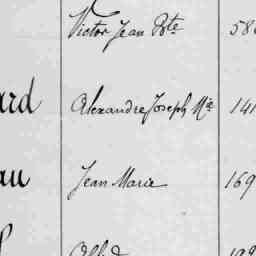 Victor Jean Bte 58
ard Alexandre Joseph Mie 141
au Jean Marie 169